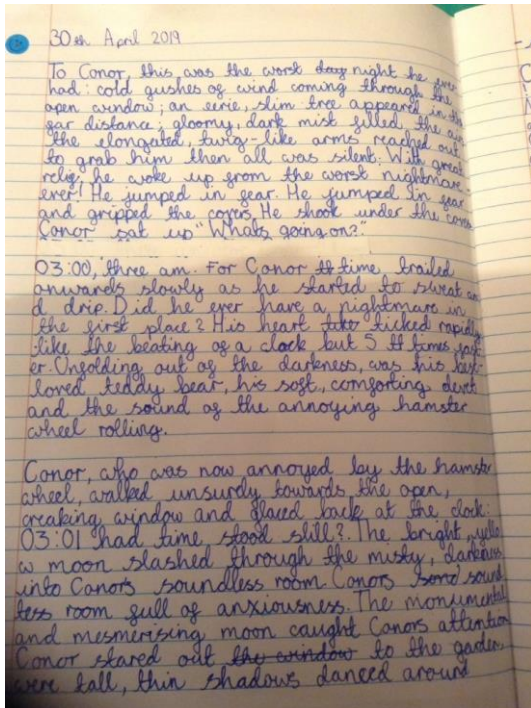 30th April 2019
To Conor, this was the worst night he ever
had: cold gushes of wind coming through the
open window; an eirie, slim tree appeared in the
far distance, gloomy, dark mist filled the air
the elongated, twig-like arms reached out
to grab him then all was silent. With great
relif, he woke up from the worst nightmare
ever! He jumped in fear. He jumped in fear
and gripped the covers. He shook under the covers
Conor sat up "Whats going on?"
03:00, three am. For Conor time trailed
onwards slowly as he started to sweat an
d drip. Did he ever have a nightmare in
the first place? His heart ticked rapidly
like the beating of a clock but 5 times fast
er. Unfolding out of the darkness, was his best-
loved teddy bear, his soft, comforting
and the sound of the annoying hamster
wheel rolling.
Conor, who was now annoyed by the hamster
wheel, walked unsurdy towards the open,
creaking window and glaced back at the clock:
03:01 had time stood still?. The bright, yello
w moon slashed through the misty, darkness
into Conors soundless room Conors sound
less room full of anxiousness. The monumental
and mesmerising moon caught Conors attention
Conor stared out the window to the garden
were tall, thin shadows danced around